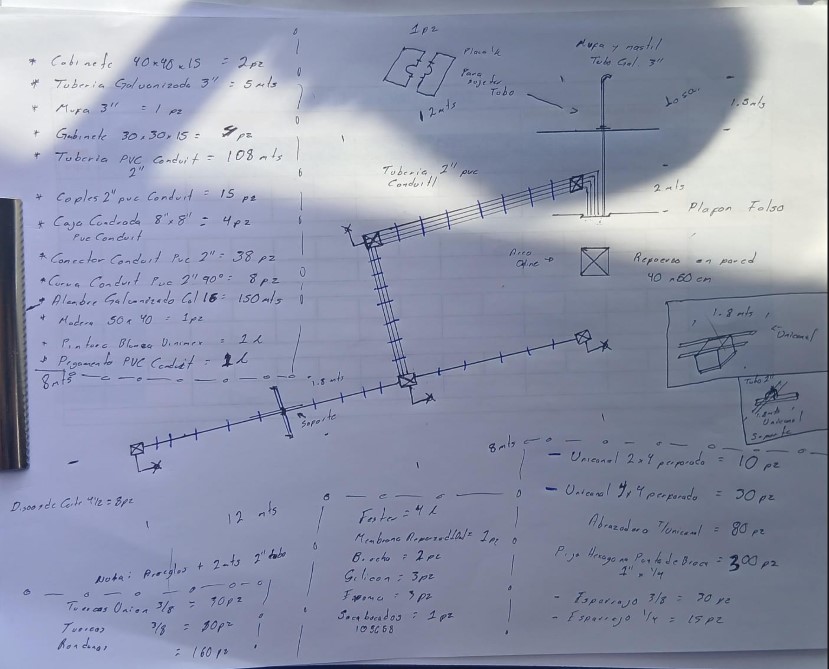 * Cabinete 40x40x15 = 2pz
* Tuberia Galvanizada 3" = 5 mts
* Mufa 3" = 1 pz
* Gabinete 30x30x15 = 4 pz
* Tuberia PVC Conduit = 108 mts
2"
* Coples 2" pvc Conduit = 15 pz
* Caja Cuadrada 8"x8" = 4pz
Pvc Conduit
* Conector Conduit Pvc 2" = 38 pz
* Curva Conduit Pvc 2" 90° = 8 pz
* Alambre Galvanizado Cal 16 = 150 mts
* Madera 50 x 40 = 1pz
* Pintura Blanca Vinimex = 1 l
* Pegamento PVC Conduit = 1 l
8 mts
1 pz
Placa
Para
sujetar
Tubo
12 mts
Mufa y mastil
Tubo Gal. 3"
Losa.
1.5 mts
Tuberia 2" pvc
Conduit
2 mts
Plafon Falso
Repuerso en pared
40 x 60 cm
1.8 mts
Unicanal
Tubo 2"
Unicanal
Soporte
1.8 mts
Soporte
8 mts
- Unicanal 2x4 perforado = 10 pz
- Unicanal 4x4 perforado = 30 pz
Abrazadera T/Unicanal = 80 pz
Pija Hexagona Punta de Broca = 300 pz
1" x 1/4
- Esparrajo 3/8 = 30 pz
- Esparrajo 1/4 = 15 pz
Disco de Corte 4 1/2 = 8pz
12 mts
Nota: Arreglos + 2 mts 2" tubo
Tuercas Union 3/8 = 30pz
Tuercas 3/8 = 80pz
= 160 pz
Fester = 4 l
Membrana = 1 pz
Brocha = 2 pz
Silicon = 3pz
Espuma = 3 pz
Sacabocados = 1 pz